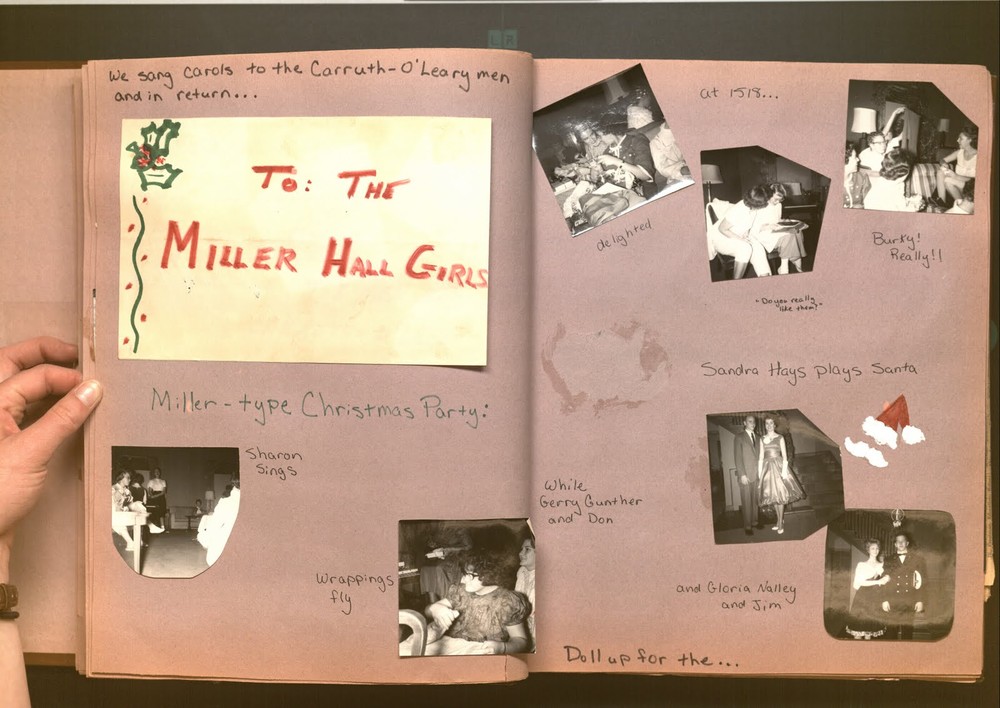 We sang carols to the Carruth-O'Leary men
and in return...
To: The
Miller Hall Girls
Miller-type Christmas Party:
Sharon
Sings
Wrappings
fly
at 1518...
delighted
"Do you really
like them?"
Burky!
Really!!
Sandra Hays plays Santa
While
Gerry Gunther
and Don
and Gloria Nalley
and Jim
Doll up for the...